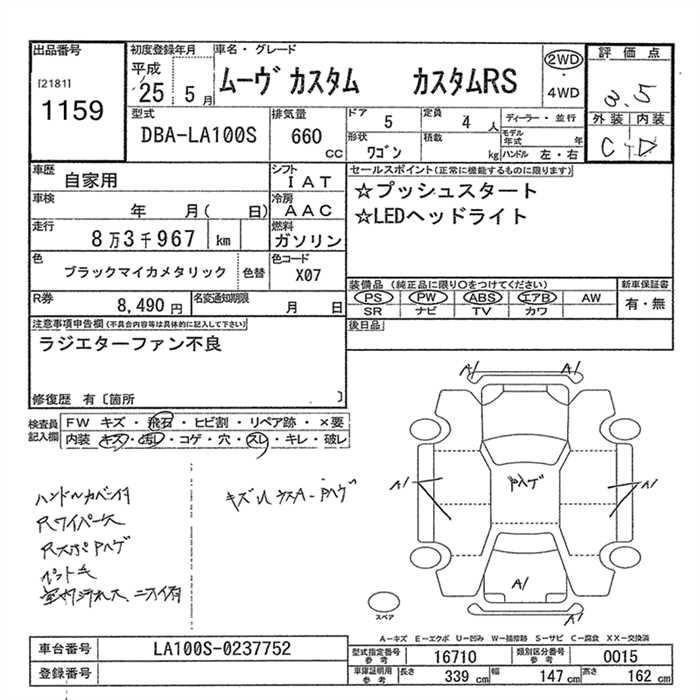 出品番号
[2181]
1159
初度登録年月
平成
25 5月
車名・グレード
ムーヴ カスタム カスタムRS
2WD
・
4WD
評価点
3.5
外装 内装
C D
型式
DBA-LA100S
排気量
660
cc
ドア 5
定員 4 人
ディーラー・並行
形状
ワゴン
積載
kg
モデル年式 年
ハンドル 左・右
車歴
自家用
シフト
IAT
車検
年 月( 日)
冷房
AAC
走行
8万3千967 km
燃料
ガソリン
色
ブラックマイカメタリック
色替
色コード
X07
R券
8,490 円
名変通知期限
月 日
セールスポイント(正常に機能するものに限ります)
☆プッシュスタート
☆LEDヘッドライト
装備品(純正品に限り○をつけてください)
PS PW ABS エアB AW
SR ナビ TV カワ
新車保証書
有・無
後日品
注意事項申告欄(不具合内容等は具体的に記入して下さい)
ラジエターファン不良
修復歴 有〔箇所 〕
検査員
記入欄
FW キズ・飛石・ヒビ割・リペア跡・×要
内装 キズ・汚レ・コゲ・穴・スレ・キレ・破レ
ハンドルカバー付
Rワイパー欠
Rスポ
ペット毛
A1 A1
A1
A1
A1
A1
スペア
A-キズ E-エクボ U-凹み W-補修跡 S-サビ C-腐食 XX-交換済
車台番号
LA100S-0237752
登録番号
型式指定番号
参考
16710
類別区分番号
参考
0015
車庫証明用
参考
長さ 339 cm
幅 147 cm
高さ 162 cm